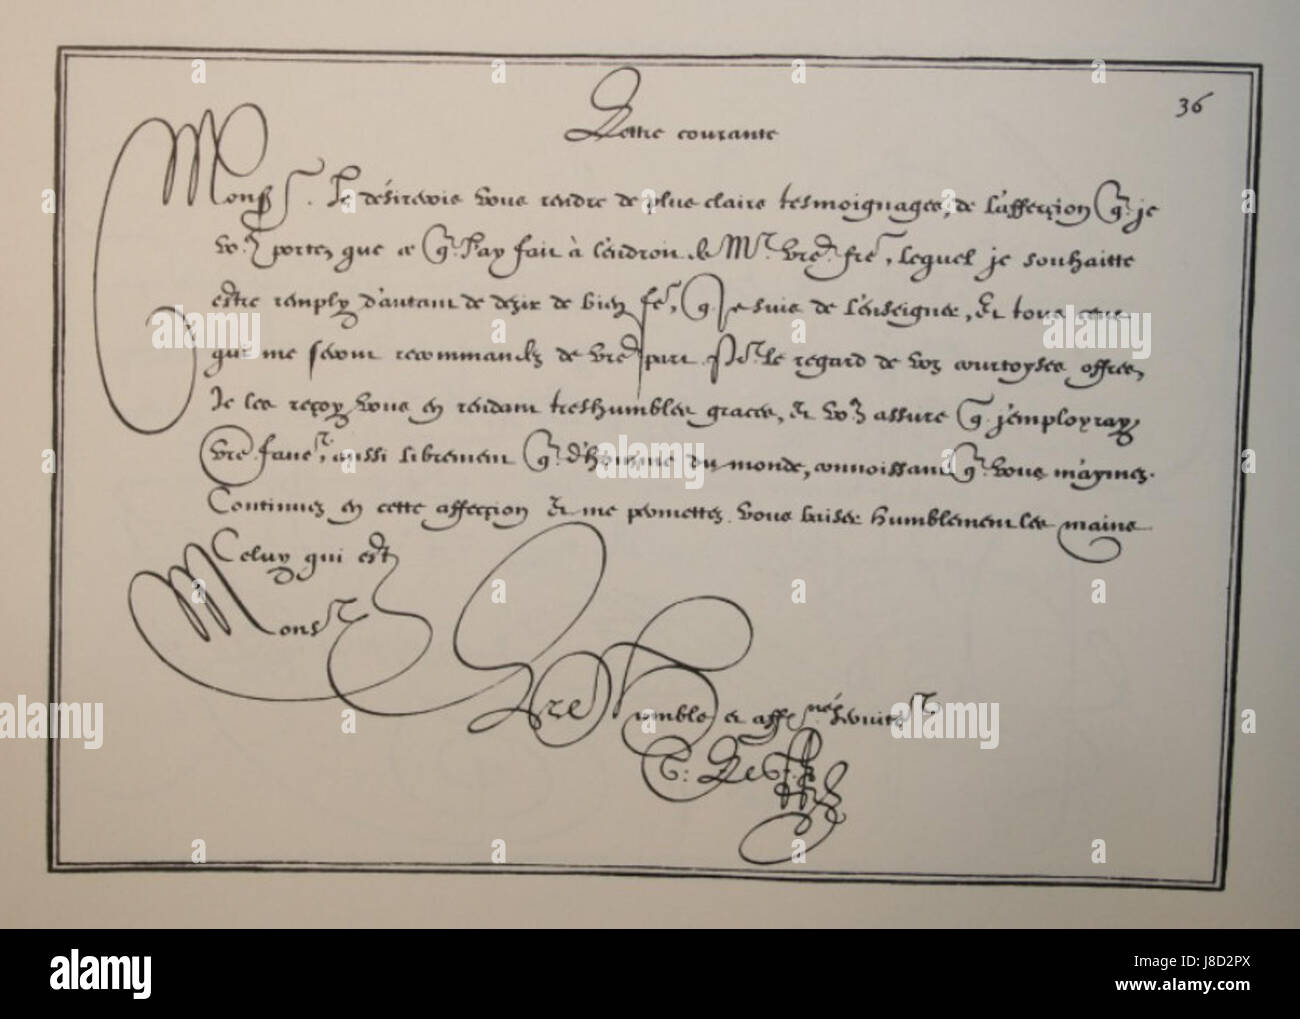 36
Lettre courante
Monsr. Je désirerois vous rendre de plus claire tesmoignages, de l'affection q. je
vo. portez que ce q. j'ay fait à l'endroit de Mr. vre. frere, lequel je souhaitte
estre remply d'autant de dezir de bien fe., q. je suis de l'enseigner, et tous ceux
qui me seront recommandez de vre part. Pour le regard de voz courtoyses offres,
Je les reçoy, vous en rendant treshumbles graces, et vo. assure q. j'employray
vre faveur, aussi librement q. d'homme du monde, connoissant q. vous m'aymez.
Continuez en cette affection et me permettez vous baiser humblement les mains
Celuy qui est
Monsr
Vre humble et affne. servitr
alamy
alamy
Image ID: J8D2PX
www.alamy.com